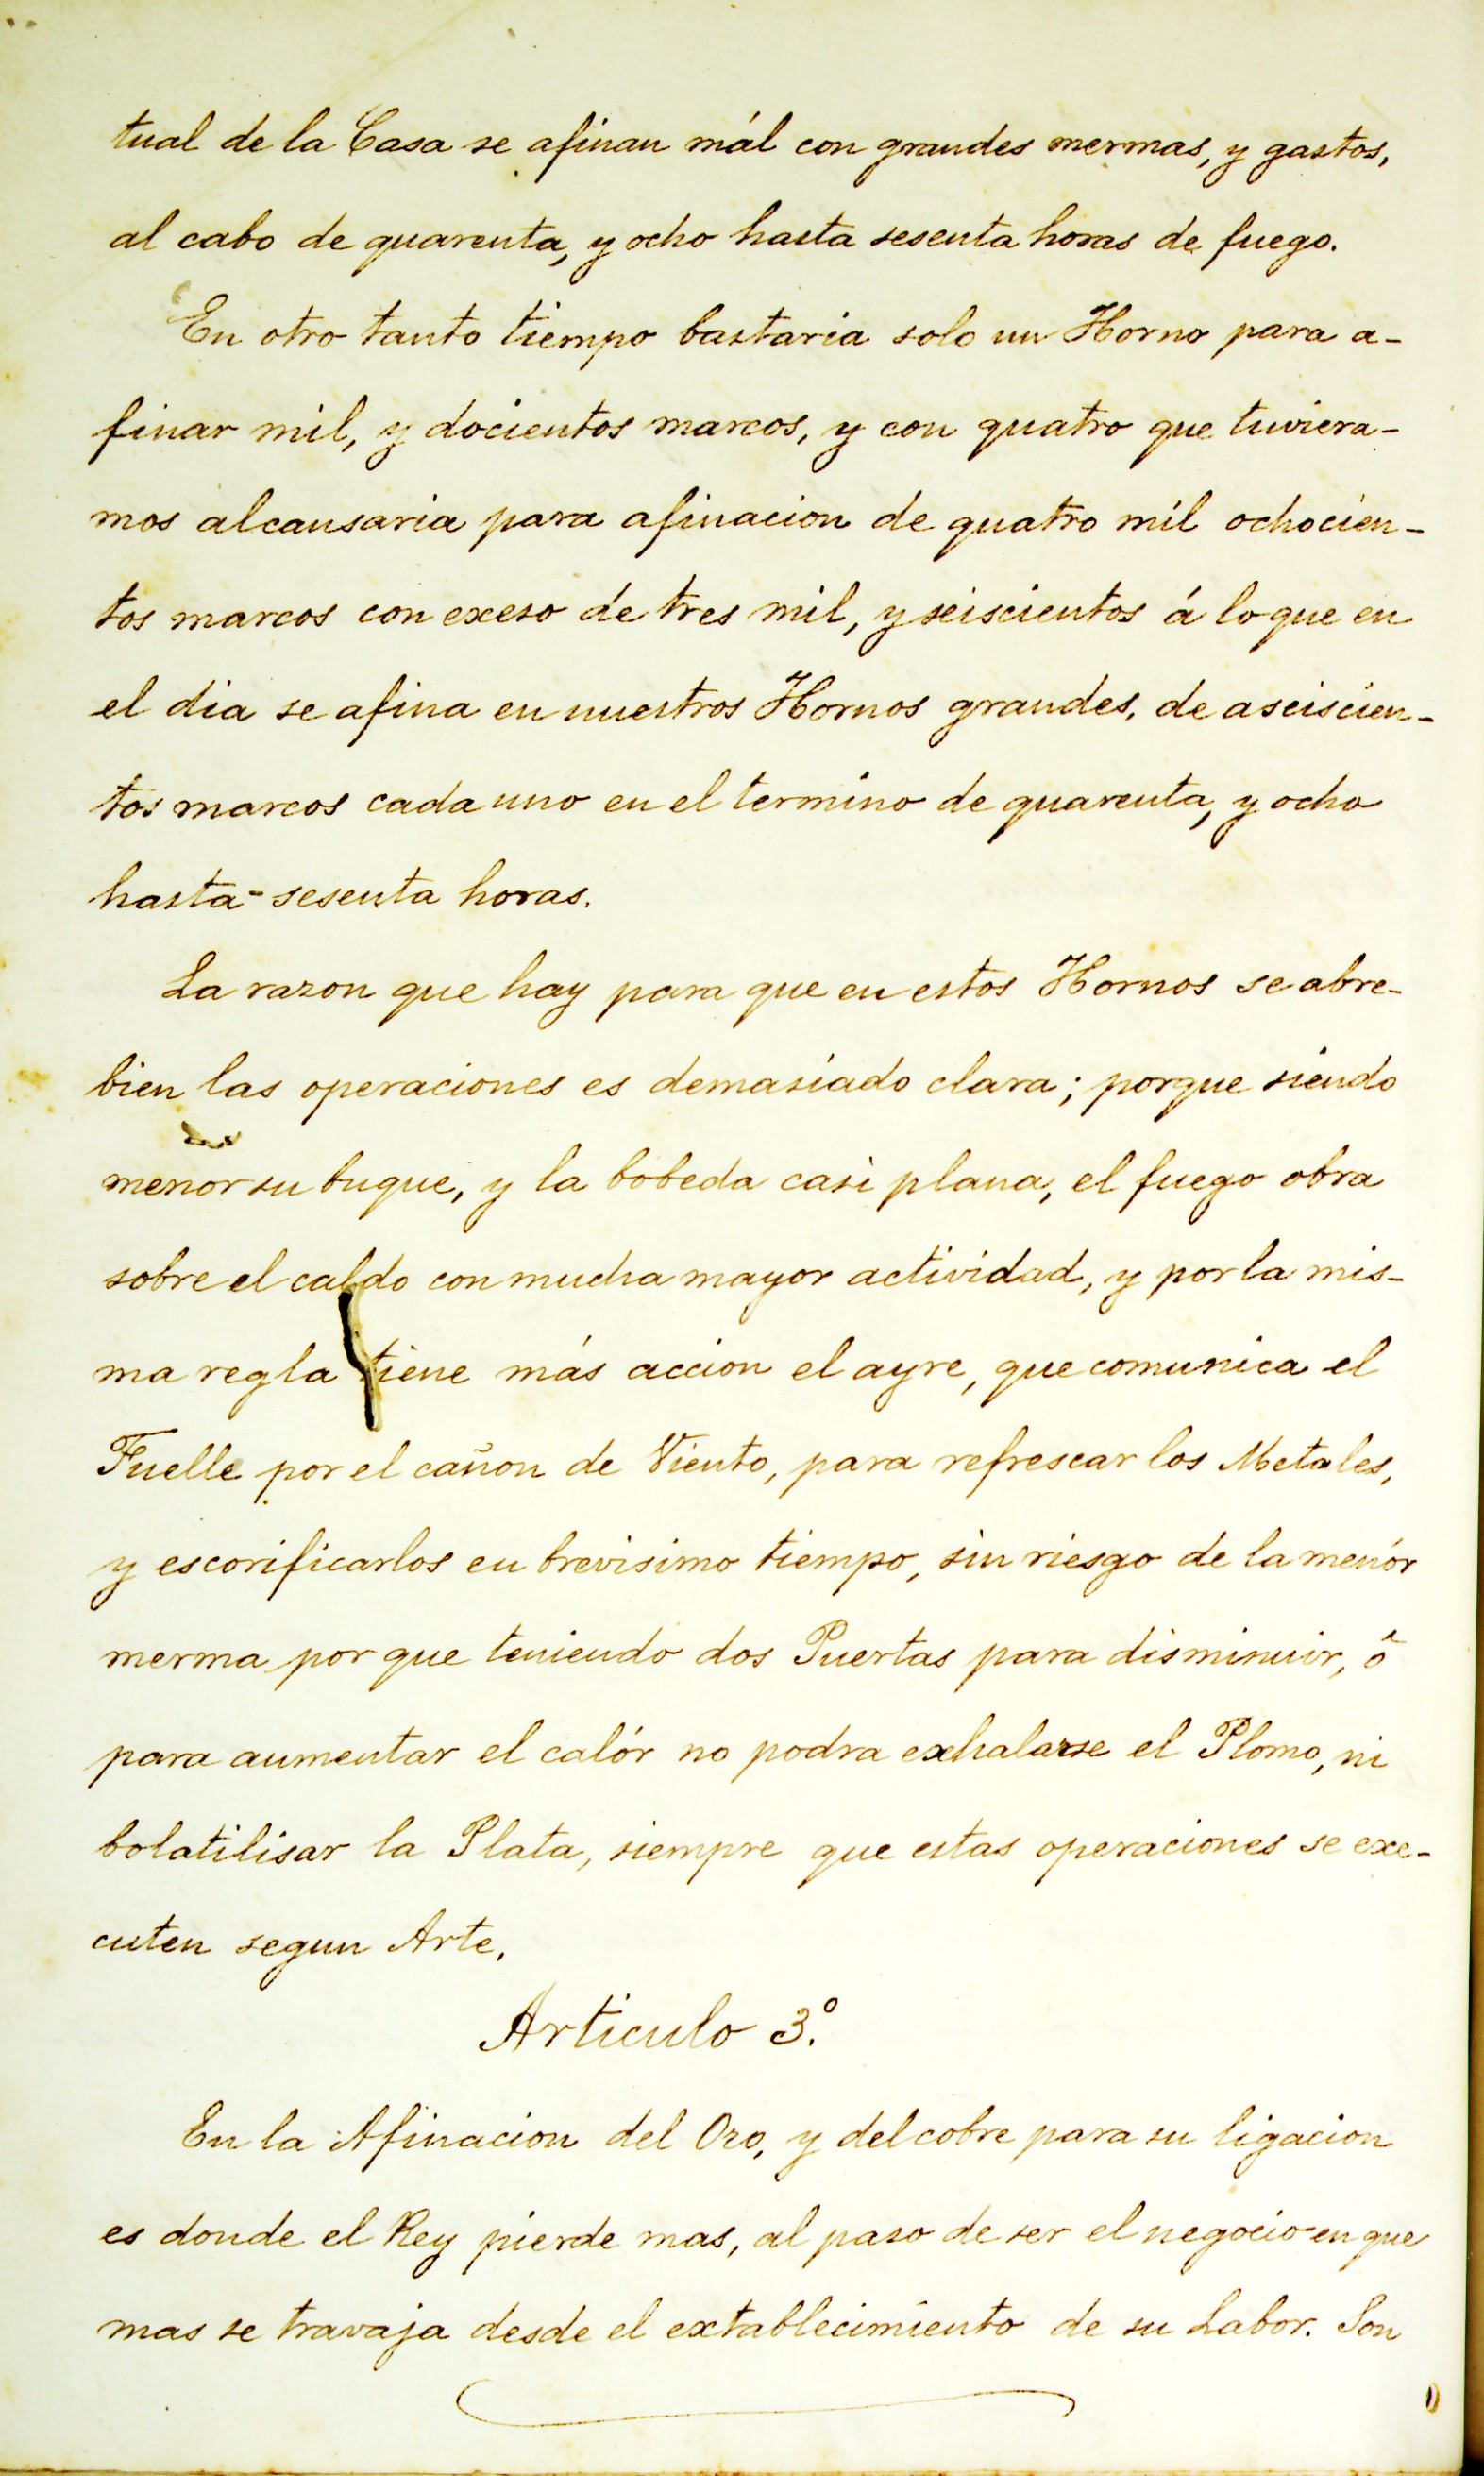 tual de la Casa se afinan mál con grandes mermas, y gastos,
al cabo de quarenta, y ocho hasta sesenta horas de fuego.
En otro tanto tiempo bastaria solo un Horno para a-
finar mil, y docientos marcos, y con quatro que tuviera-
mos alcansaria para afinacion de quatro mil ochocien-
tos marcos con exeso de tres mil, y seiscientos á lo que en
el dia se afina en nuestros Hornos grandes, de aseiscien-
tos marcos cada uno en el termino de quarenta, y ocho
hasta sesenta horas.
La razon que hay para que en estos Hornos se abre-
bien las operaciones es demasiado clara; porque siendo
menor su buque, y la bobeda casi plana, el fuego obra
sobre el caldo con mucha mayor actividad, y por la mis-
ma regla tiene más accion el ayre, que comunica el
Fuelle por el cañon de Viento, para refrescar los Metales,
y escorificarlos en brevisimo tiempo, sin riesgo de la menór
merma por que teniendo dos Puertas para disminuir, ô
para aumentar el calór no podra exhalarse el Plomo, ni
bolatilisar la Plata, siempre que estas operaciones se exe-
cuten segun Arte.
Articulo 3.º
En la Afinacion del Oro, y del cobre para su ligacion
es donde el Rey pierde mas, al paso de ser el negocio en que
mas se travaja desde el extablecimiento de su Labor. Son